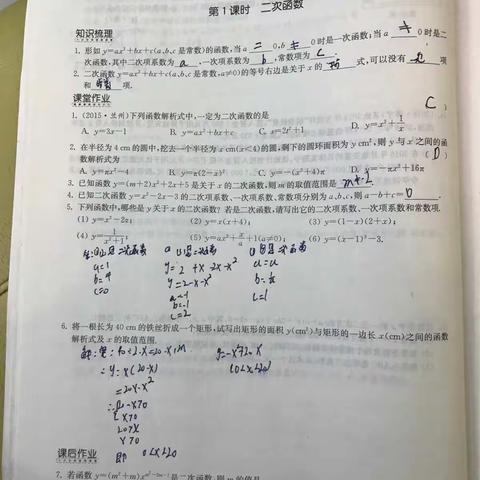 第1课时 二次函数
知识梳理
1. 形如 y=ax²+bx+c(a,b,c 是常数)的函数,当 a = 0,b ≠ 0时是一次函数;当 a ≠ 0时是二
次函数,其中二次项系数为 a ,一次项系数为 b ,常数项为 c .
2. 二次函数 y=ax²+bx+c(a,b,c 是常数,a≠0)的等号右边是关于 x 的 式,可以没有 项
和 常数 项.
课堂作业
1. (2015·兰州)下列函数解析式中,一定为二次函数的是 ( C )
A. y=3x-1 B. y=ax²+bx+c C. s=2t²+1 D. y=x²+1/x
2. 在半径为 4 cm 的圆中,挖去一个半径为 x cm(x<4)的圆,剩下的圆环面积为 y cm²,则 y 与 x 之间的函
数解析式为 ( D )
A. y=πx²-4 B. y=π(2-x)² C. y=-(x²+4) D. y=-πx²+16π
3. 已知函数 y=(m+2)x²+2x+5 是关于 x 的二次函数,则 m 的取值范围是 m≠-2
4. 已知二次函数 y=x²-2x-3 的二次项系数、一次项系数、常数项分别为 a,b,c,则 a-b+c= 0
5. 下列函数中,哪些是 y 关于 x 的二次函数? 若是二次函数,请写出它的二次项系数、一次项系数和常数项.
(1) y=x²-2x; (2) y=x(x+4); (3) y=(1-x)(2+x);
(4) y=1/(x²+1); (5) y=ax²+x/a+1(a≠0); (6) y=(x-1)³-3.
a=1
b=4
c=0
y=2+x-2x-x²
y=2-x-x²
a=-1
b=-1
c=2
a=a
c=1
6. 将一根长为 40 cm 的铁丝折成一个矩形,试写出矩形的面积 y(cm²)与矩形的一边长 x(cm)之间的函数
解析式及 x 的取值范围.
y=x(20-x)
=20x-x²
x>0
y>0
即 0<x<20
y=-x²+20x
(0<x<20)
课后作业
7. 若函数 y=(m²+m) 是二次函数,则 m 的值是